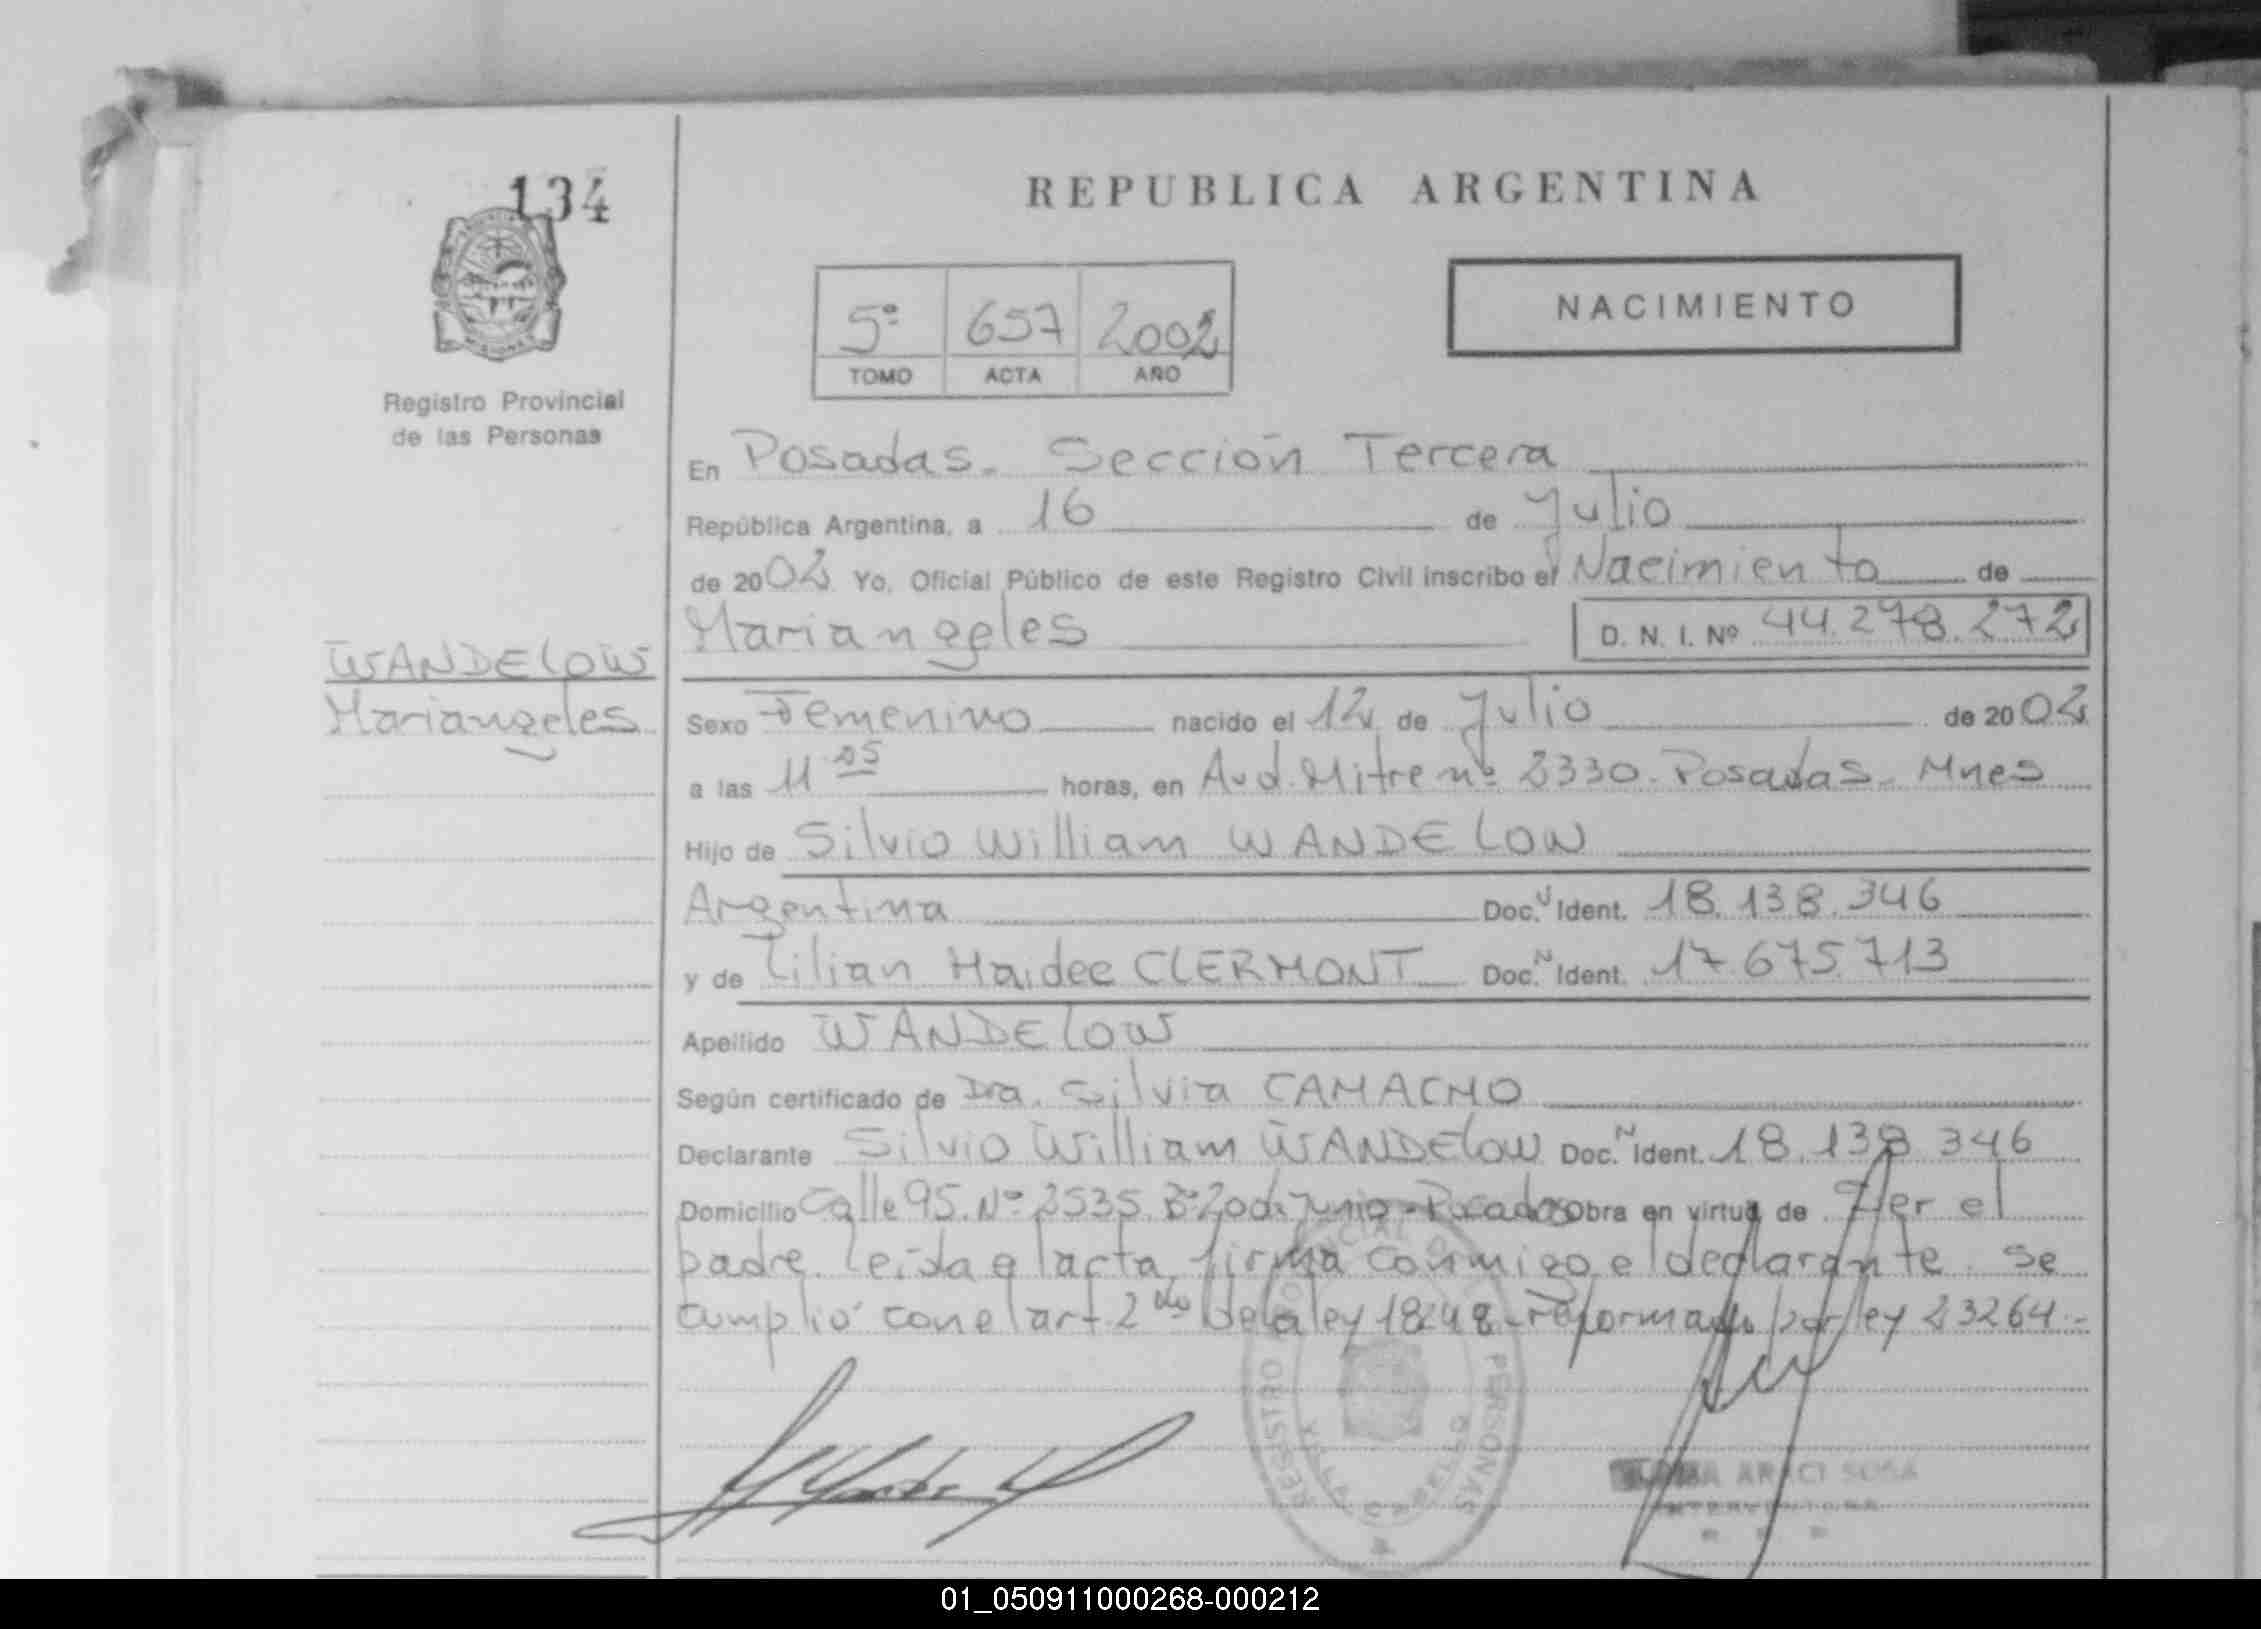 134
REPUBLICA ARGENTINA
5º 657 2002
TOMO ACTA AÑO
NACIMIENTO
MISIONES
Registro Provincial
de las Personas
En Posadas. Sección Tercera
República Argentina, a 16 de Julio
de 2002 Yo, Oficial Público de este Registro Civil inscribo el Nacimiento de
Mariangeles D. N. I. Nº 44.278.272
WANDELOW
Mariangeles
Sexo Femenino nacido el 12 de Julio de 2002
a las 11 05 horas, en Avd. Mitre nº 2330. Posadas. Mnes
Hijo de Silvio William WANDELOW
Argentina Doc. Ident. 18.138.346
y de Lilian Haidee CLERMONT Doc. Ident. 17.675.713
Apellido WANDELOW
Según certificado de Dra. Silvia CAMACHO
Declarante Silvio William WANDELOW Doc. Ident. 18.138.346
Domicilio Calle 95. Nº 2535 Bº 20 de Junio - Posadas Obra en virtud de Ser el
padre. leída el acta, firma conmigo el declarante. Se
cumplió con el art 2do de la ley 18248 - reformado por ley 23264.-
REGISTRO PROVINCIAL DE PERSONAS
VILLA CABELLO
ARACI SOSA
INTERVENTORA
01_050911000268-000212